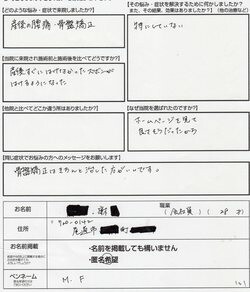 ■どのような悩み・症状で来院しましたか?
産後の腰痛・骨盤矯正
■その悩み・症状を解決するために何かしましたか?
また、その結果、効果はありましたか?(他の治療など)
特にしていない
■当院に来院され施術前と施術後を比べてどうですか?
産後すぐにはけなかったズボンが
はけるようになった
■他院と比べてどこか違う所はありましたか?
■なぜ当院を選ばれたのですか?
ホームページを見て
良さそうだったから
■同じ症状でお悩みの方へのメッセージをお願いします
骨盤矯正はきちんと治した方がいいです。
お名前
職業
(28才)
住所
尾道市
町
お名前掲載
-名前を掲載しても構いません
-匿名希望
ペンネーム
M.F